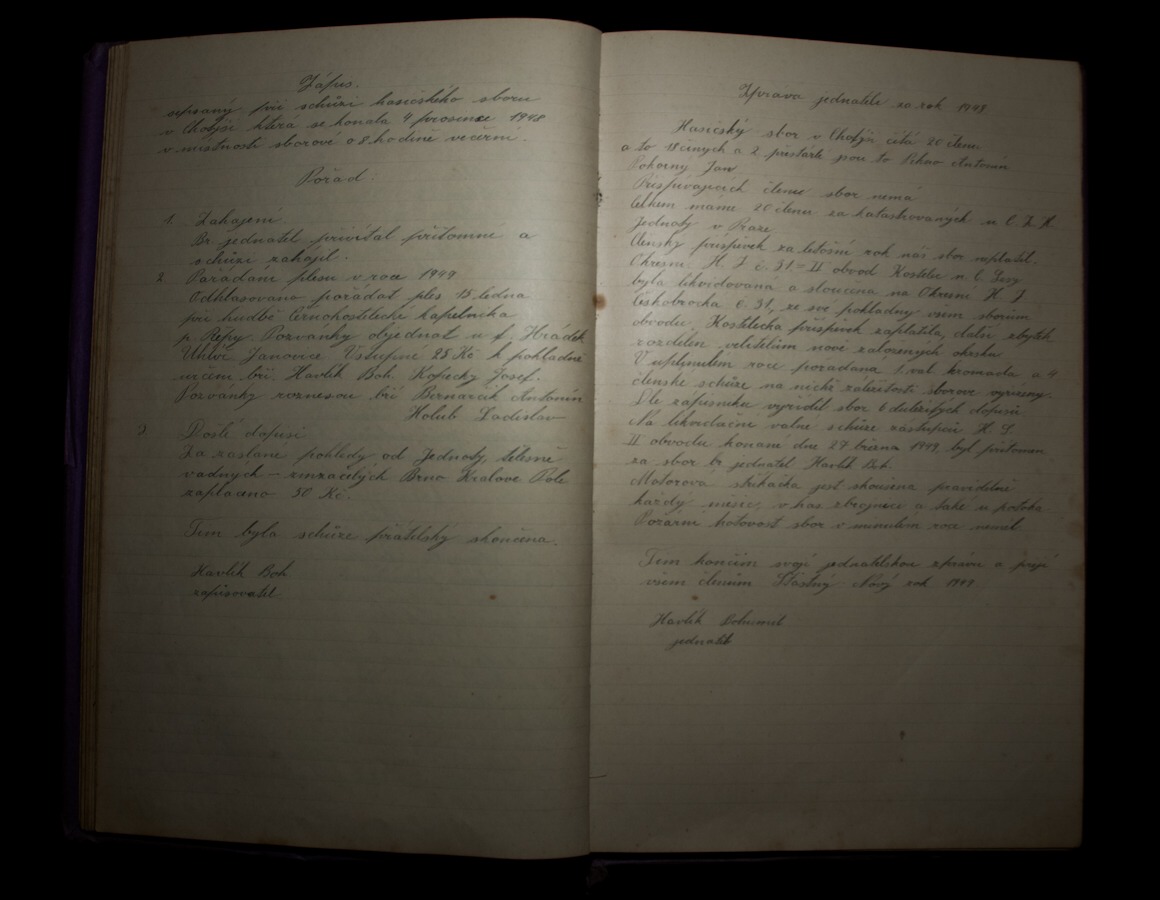 Zápis.
sepsaný při schůzi hasičského sboru
v Chotýši která se konala 4 prosince 1948
v místnosti sborové o 8 hodině večerní.
Pořad.
1. Zahájení
Br. jednatel přivítal přítomné a
schůzi zahájil.
2 Pořádání plesu v roce 1949
Odhlasováno pořádat ples 15 ledna
při hudbě Černokostelecké kapelníka
p. Řepy. Pozvánky objednat u f. Hrádek
Uhlíř. Janovice. Vstupné 25 Kč k pokladně
určeni bří. Havlík Boh. Kopecký Josef.
Pozvánky roznesou bří Bernarčík Antonín
Holub Ladislav
3 Došlé dopisi
Za zaslané pohledy od Jednoty tělesně
vadných – zmrzačilých Brno Královo Pole
zaplaceno 50 Kč.
Tím byla schůze přátelský skončena.
Havlík Boh
zapisovatel
Zpráva jednatele za rok 1948
Hasičský sbor v Chotýši čítá 20 členu
a to 18 činých a 2 přestárlé jsou to Antonín
Pokorný Jan
Přispívajících členu sbor nemá
Celkem máme 20 členu za katastrovaných u C. Z. H.
Jednoty v Praze
Členský příspěvek za letošní rok náš sbor neplatil.
Okresní H. J. č. 51 – II obvod Kostelec n. Č. Lesy
byla likvidována a sloučena na Okresní H. J.
Českobrodka č. 51, ze své pokladny všem sborům
obvodu Kostelecka příspěvek zaplatila, další zbytek
rozdělen velitelům nově založených okrsku
V uplynulém roce pořádána 1. val. hromada a 4
členské schůze na nichž záležitosti sborové vyřízeny.
Dle zápisníku vyřídil sbor 6 duležitých dopisů
Na likvidační valné schůze zástupců H. S.
II obvodu konané dne 27 března 1949 byl přítomen
za sbor br. jednatel Havlík Boh.
Motorová stříkačka jest zkoušena pravidelně
každý měsíc, v has zbrojnice a také u potoka.
Požární hotovost sbor v minulém roce neměl
Tím končím svoji jednatelskou zprávu a přeji
všem členům Šťastný Nový rok 1949
Havlík Bohumil
jednatel